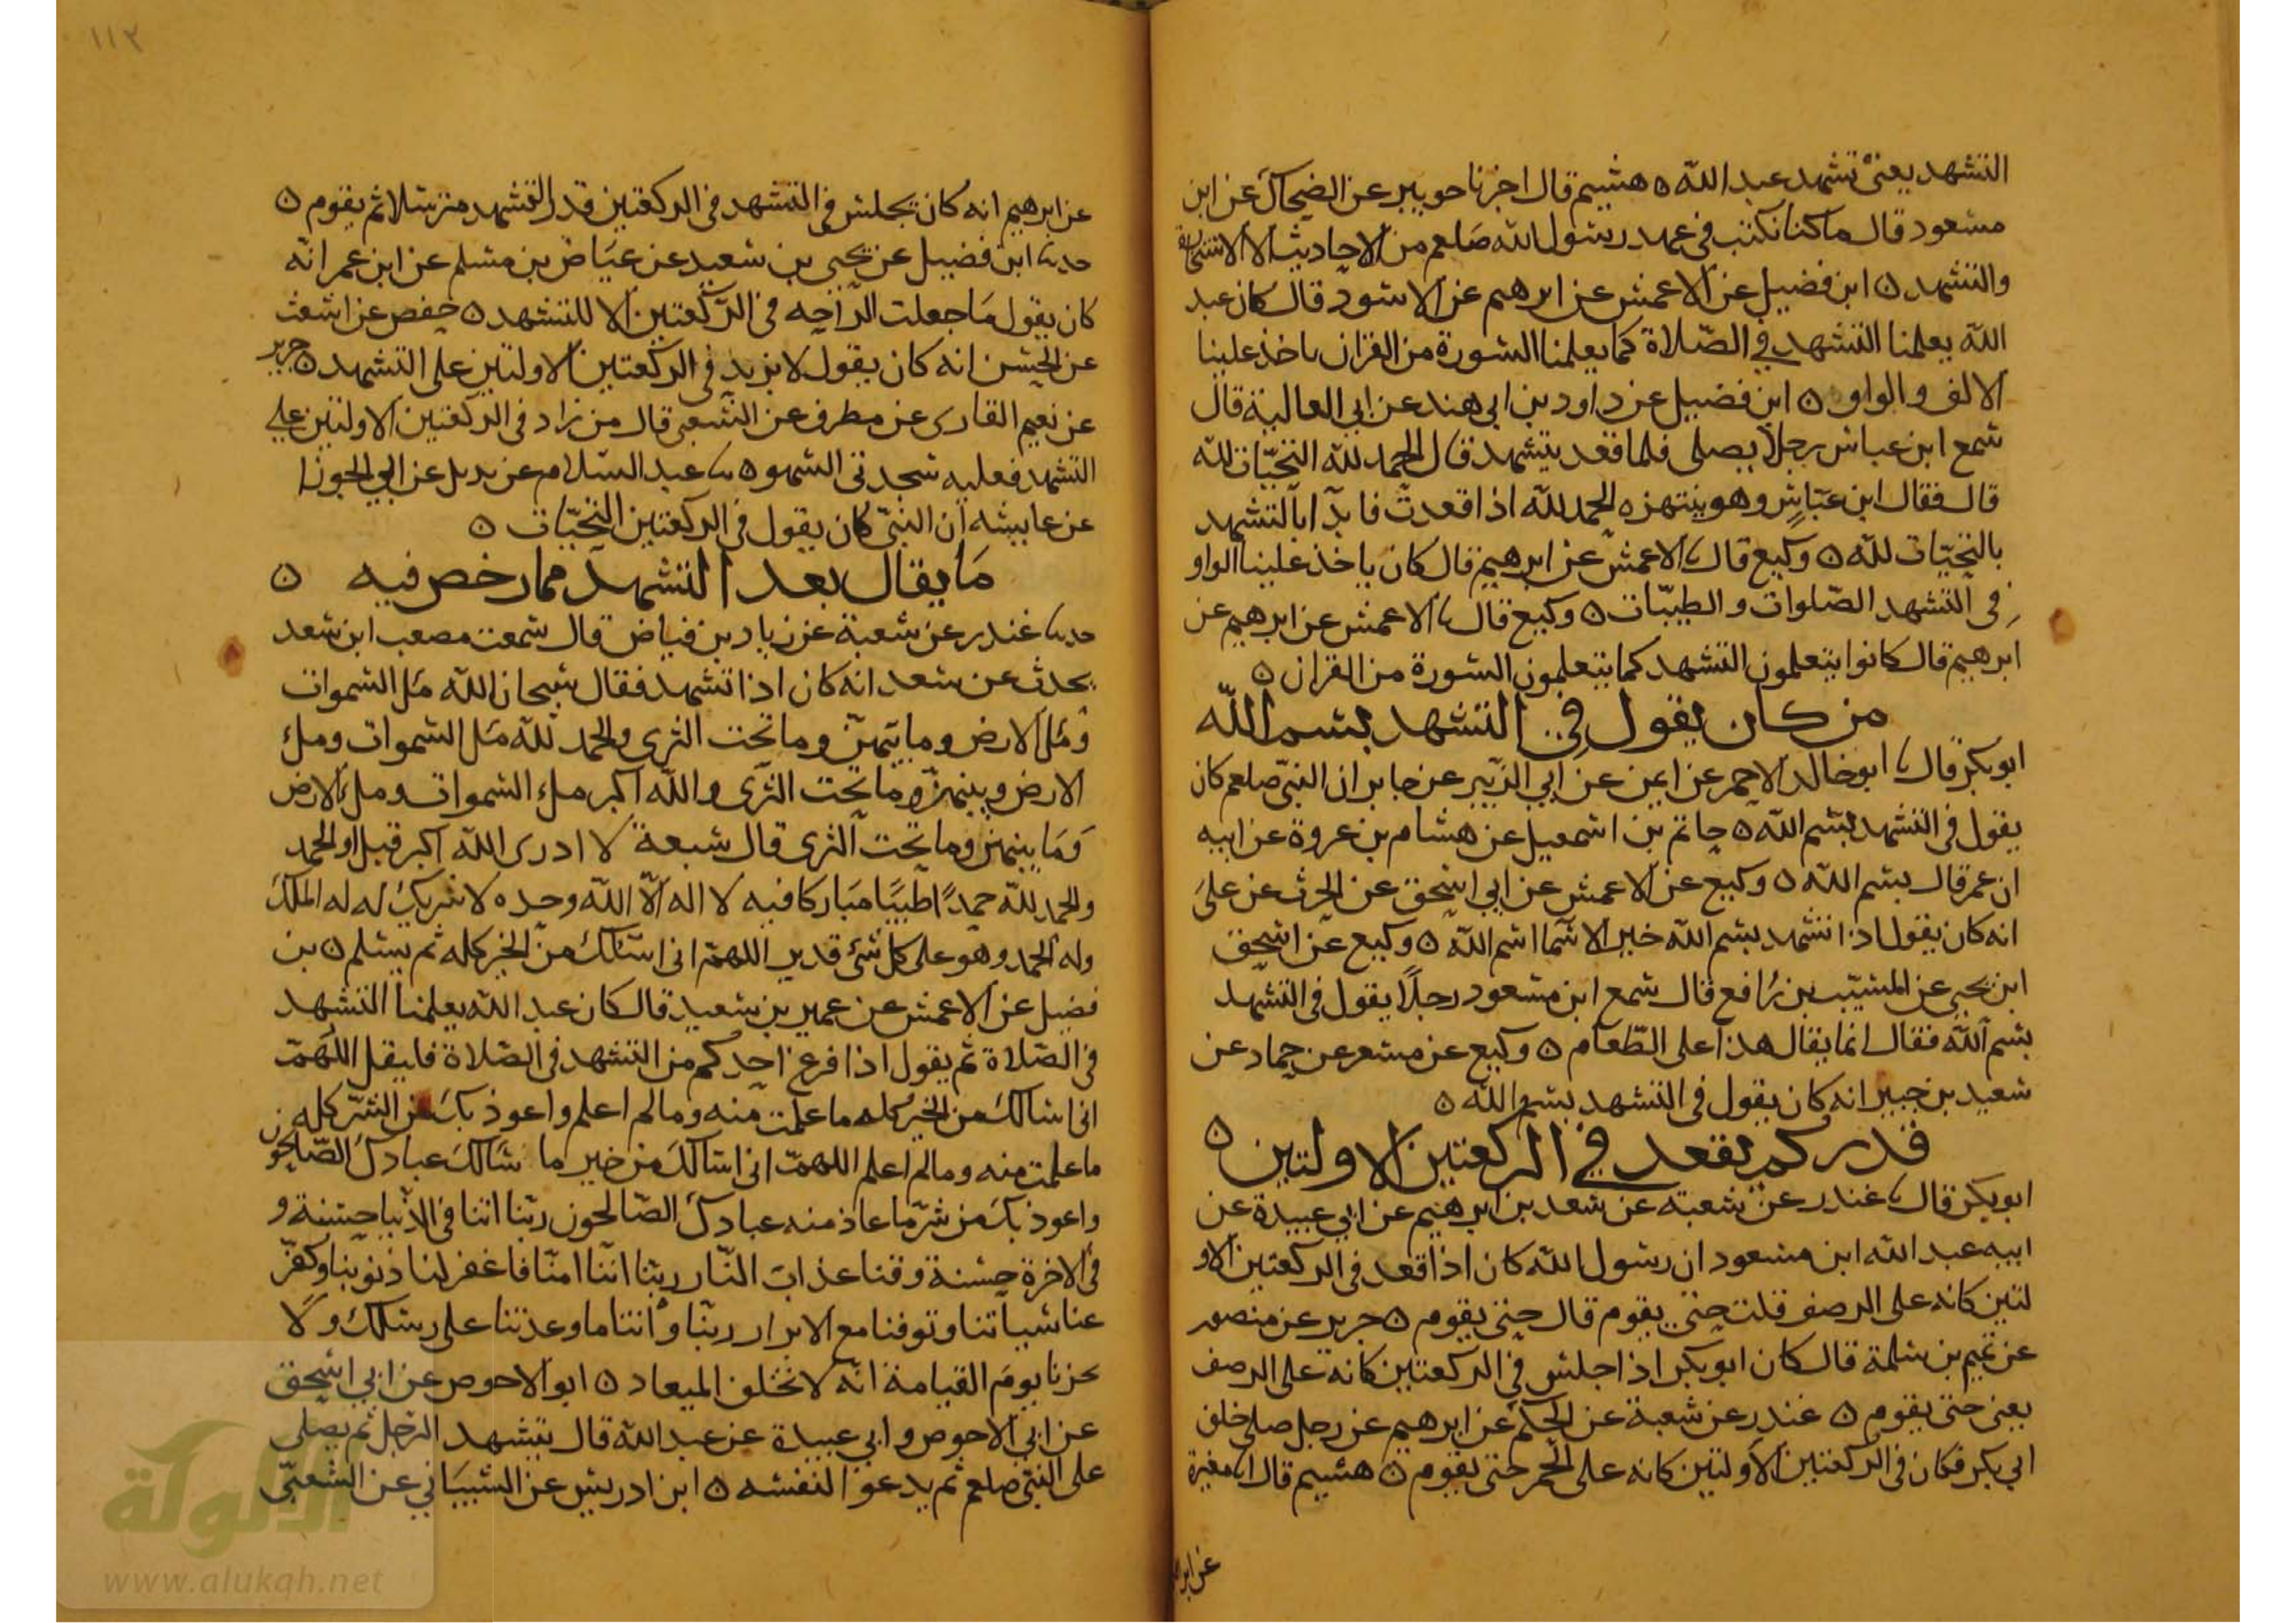 التشهد يعني تشهد عبد الله ٥ هشيم قال اخبرنا جويبر عن الضحاك عن ابن
مسعود قال ما كنا نكتب في عهد رسول الله صلعم من الاحاديث الا الاستخارة
والتشهد ٥ ابن فضيل عن الاعمش عن ابرهيم عن الاسود قال كان عبد
الله يعلمنا التشهد في الصلاة كما يعلمنا السورة من القران ياخذ علينا
الالف والواو ٥ ابن فضيل عن داود بن ابي هند عن ابي العالية قال
سمع ابن عباس رجلا يصلي فلما قعد يتشهد قال الحمد لله التحيات لله
قال فقال ابن عباس وهو ينتهزه الحمد لله اذا قعدت فابدا بالتشهد
بالتحيات لله ٥ وكيع قال نا الاعمش عن ابرهيم قال كان ياخذ علينا الواو
في التشهد الصلوات والطيبات ٥ وكيع قال نا الاعمش عن ابرهيم عن
ابرهيم قال كانوا يتعلمون التشهد كما يتعلمون السورة من القران ٥
من كان يقول في التشهد بسم الله
ابو بكر قال نا ابو خالد الاحمر عن ايمن عن ابي الزبير عن جابر ان النبي صلعم كان
يقول في التشهد بسم الله ٥ حاتم بن اسمعيل عن هشام بن عروة عن ابيه
ان عمر قال بسم الله ٥ وكيع عن الاعمش عن ابي اسحق عن الحرث عن علي
انه كان يقول اذا تشهد بسم الله خير الاسما اسم الله ٥ وكيع عن اسحق
ابن يحيي عن المسيب بن رافع قال سمع ابن مسعود رجلا يقول في التشهد
بسم الله فقال انما يقال هذا على الطعام ٥ وكيع عن مسعر عن حماد عن
سعيد بن جبير انه كان يقول في التشهد بسم الله ٥
قدر كم يقعد في الركعتين الاولتين ٥
ابو بكر قال نا غندر عن شعبة عن سعد بن ابرهيم عن ابي عبيدة عن
ابيه عبد الله ابن مسعود ان رسول الله كان اذا قعد في الركعتين الاو
لتين كانه على الرصف قلت حتى يقوم قال حتى يقوم ٥ جرير عن منصور
عن تميم بن سلمة قال كان ابو بكر اذا جلس في الركعتين كانه على الرصف
يعني حتى يقوم ٥ غندر عن شعبة عن الحكم عن ابرهيم عن رجل صلى خلف
ابي بكر فكان في الركعتين الاولتين كانه على الجمر حتى يقوم ٥ هشيم قال انا مغيرة
عن ابر
١١٣
عن ابرهيم انه كان يجلس في التشهد في الركعتين قدر التشهد مترسلا ثم يقوم ٥
حدثنا ابن فضيل عن يحيى بن سعيد عن عياض بن مسلم عن ابن عمر انه
كان يقول ما جعلت الراحه في الركعتين الا للتشهد ٥ حفص عن اشعث
عن الحسن انه كان يقول لا يزيد في الركعتين الاولتين على التشهد ٥ جرير
عن نعيم القاري عن مطرف عن الشعبي قال من زاد في الركعتين الاولتين على
التشهد فعليه سجدتى السهو ٥ نا عبد السلام عن بديل عن ابي الجوزا
عن عايشه ان النبي كان يقول في الركعتين التحيات ٥
ما يقال بعد التشهد مما رخص فيه ٥
حدثنا غندر عن شعبة عن زياد بن فياض قال سمعت مصعب ابن سعد
يحدث عن سعد انه كان اذا تشهد فقال سبحان الله مل السموات
ومل الارض وما بينهن وما تحت الثرى والحمد لله مل السموات ومل
الارض وبينهن وما تحت الثرى والله اكبر مل السموات ومل الارض
وما بينهن وما تحت الثرى قال شبعة لا ادرى الله اكبر قبل او الحمد
والحمد لله حمدا طيبا مباركا فيه لا اله الا الله وحده لا شريك له له الملك
وله الحمد وهو على كل شي قدير اللهم اني اسالك من الخير كله ثم يسلم ٥ بن
فضيل عن الاعمش عن عمير بن سعيد قال كان عبد الله يعلمنا التشهد
في الصلاة ثم يقول اذا فرغ احدكم من التشهد في الصلاة فليقل اللهم
اني اسالك من الخير كله ما علمت منه وما لم اعلم واعوذ بك من الشر كله
ما علمت منه وما لم اعلم اللهم اني اسالك من خير ما سالك عبادك الصالحون
واعوذ بك من شر ما عاذ منه عبادك الصالحون ربنا اتنا في الدنيا حسنة و
في الاخرة حسنة وقنا عذاب النار ربنا اننا امنا فاغفر لنا ذنوبنا وكفر
عنا سياتنا وتوفنا مع الابرار ربنا واتنا ما وعدتنا على رسلك ولا
تخزنا يوم القيامة انه لا تخلف الميعاد ٥ ابو الاحوص عن ابي اسحق
عن ابي الاحوص وابي عبيدة عن عبد الله قال يتشهد الرجل ثم يصلى
على النبي صلعم ثم يدعو النفسه ٥ ابن ادريس عن الشيباني عن الشعبي
الألوكة
www.alukah.net